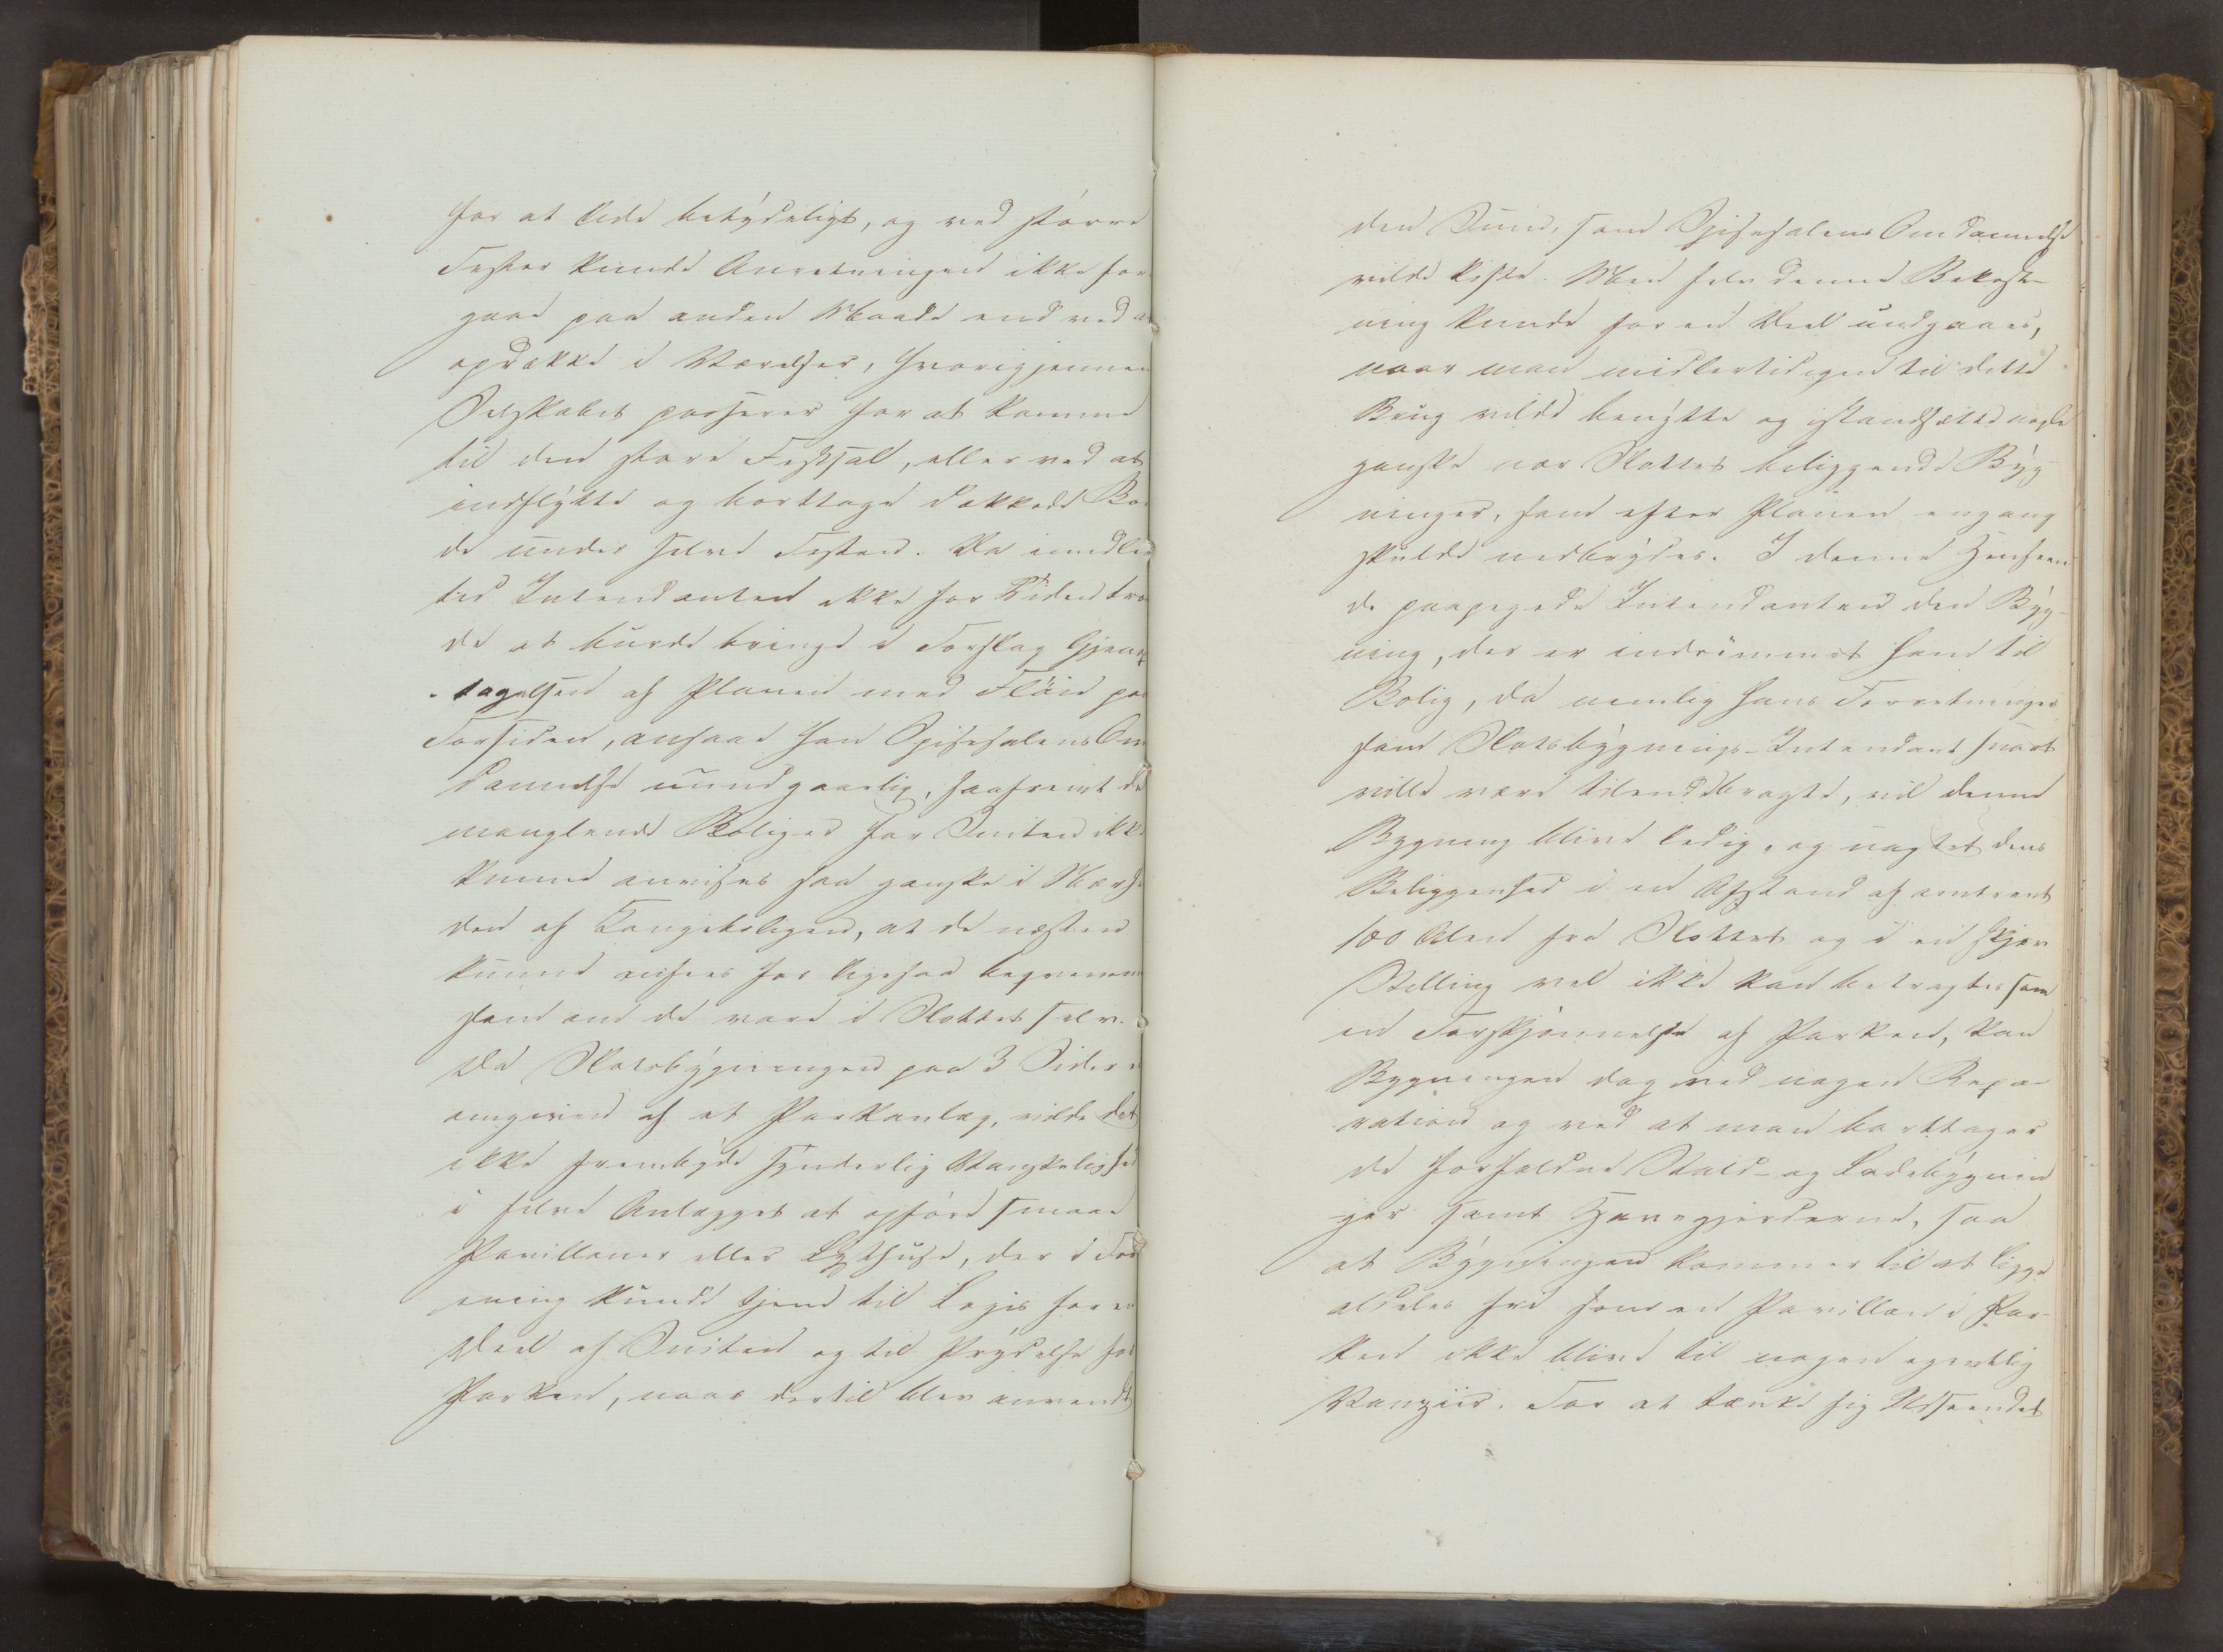 for at lide betýdeligt, og ved större
Fester kunde Anretningen ikke fore
gaae paa anden Maade end ved at
opdække i Værelser, hvorigjennem
Selskabet passerer for at komme
til den store Festsal, eller ved at
indflýtte og borttage dækkede Bor
de under selve Festen. Da imidler
tid Intendanten ikke for Tiden tro
de at burde bringe i Forslag Gjenop
tagelsen af Planen med Flöie paa
Forsiden, ansaae han Spisesalens Om
dannelse uundgaaelig, saafremt de
manglende Boliger for Suiten ikke
kunne anvises saa ganske i Nærhe
den af Kongeboligen, at de næsten
kunne ansees for ligesaa beqvemme
som om de vare i Slottet selv.
Da Slotsbýgningen paa 3 Sider er
omgiven af et Parkanlæg, vilde det
ikke frembýde synderlig Vanskelighed
i selve Anlægget at opföre smaae
Pavilloner eller Lysthuse, der i For
ening kunde tjene til Logis for en
Deel af Suiten og til Prýdelse for
Parken, naar dertil blev anvendt
den Sum, som Spisesalens Omdannelse
vilde koste. Men selv denne Bekost-
ning kunde for en Deel undgaaes,
naar man midlertidigen til dette
Brug vilde benýtte og istandsætte nogle
ganske nær Slottet beliggende Býg-
ninger, som efter Planen engang
skulde nedbrýdes. I denne Henseen
de paapegede Intendanten den Býg-
ning, der er indrömmet ham til
Bolig, da nemlig hans Forretninger
som Slotsbýgnings-Intendant snart
ville være tilendebragte, vil denne
Bygning blive ledig, og uagtet dens
Beliggenhed i en Afstand af omtrent
100 Alen fra Slottet og i en skjæv
Stilling vel ikke kan betragtes som
en Forskjönnelse af Parken, kan
Bygningen dog ved nogen Repa-
ration og ved at man borttager
de forfaldne Stald- og Ladebýgnin
ger samt Havegjerderne, saa
at Býgningen kommer til at ligge
aldeles frie som en Pavillon i Par-
ken ikke blive til nogen egentlig
Vanziir. For at tænke sig Udseendet